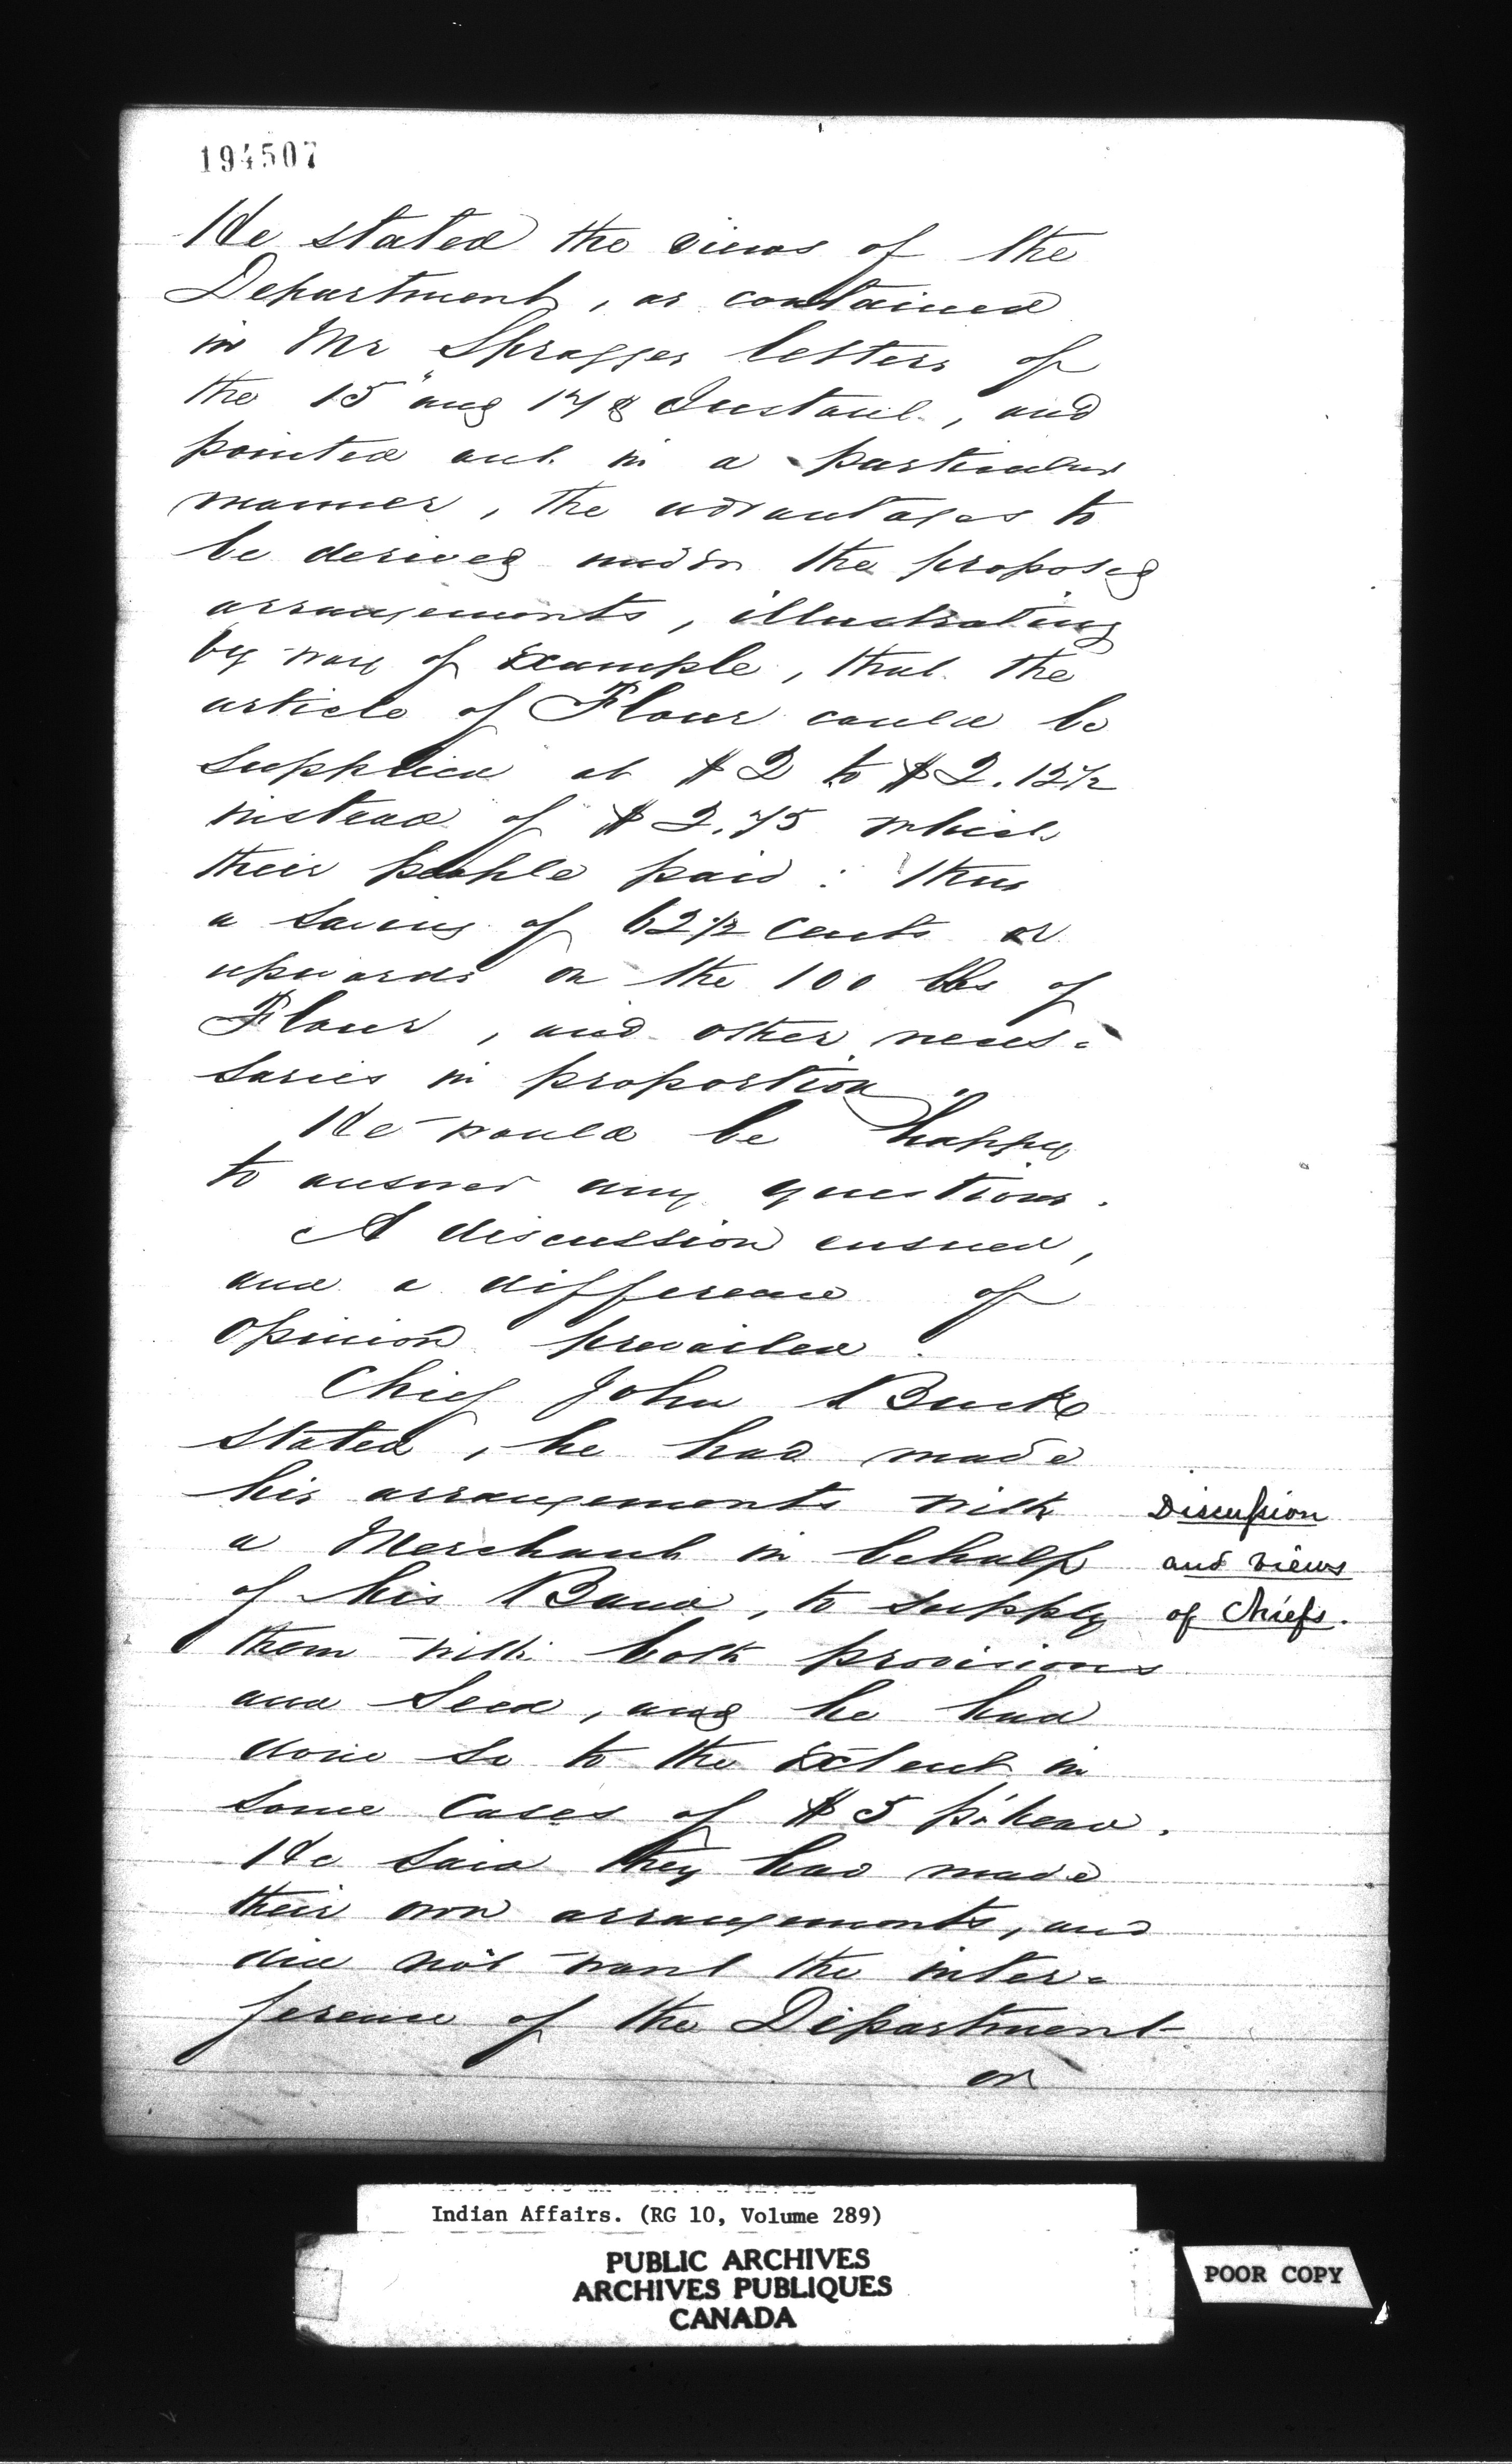 194507
He stated the views of the
Department, as contained
in Mr Spragges letters of
the 15" and 17th Instant, and
pointed out in a particular
manner, the advantages to
be derived under the proposed
arrangements, illustrating
by way of Example, that the
article of Flour could be
supplied at $2 to $2.12½
instead of $2.75 which
their people paid: thus
a saving of 62½ cents or
upwards on the 100 lbs of
Flour, and other neces=
saries in proportion.
He would be happy
to answer any questions.
A discussion ensued,
and a difference of
opinion prevailed.
Chief John Buck
stated, he had made
his arrangements with
a Merchant in behalf
of his Band, to supply
them with both provisions
and Seed, and he had
done so to the Extent in
some cases of $5 p. head.
He said they had made
their own arrangements, and
did not want the inter=
ference of the Department
or
Discussion
and views
of Chiefs.
Indian Affairs. (RG 10, Volume 289)
PUBLIC ARCHIVES
ARCHIVES PUBLIQUES
CANADA
POOR COPY